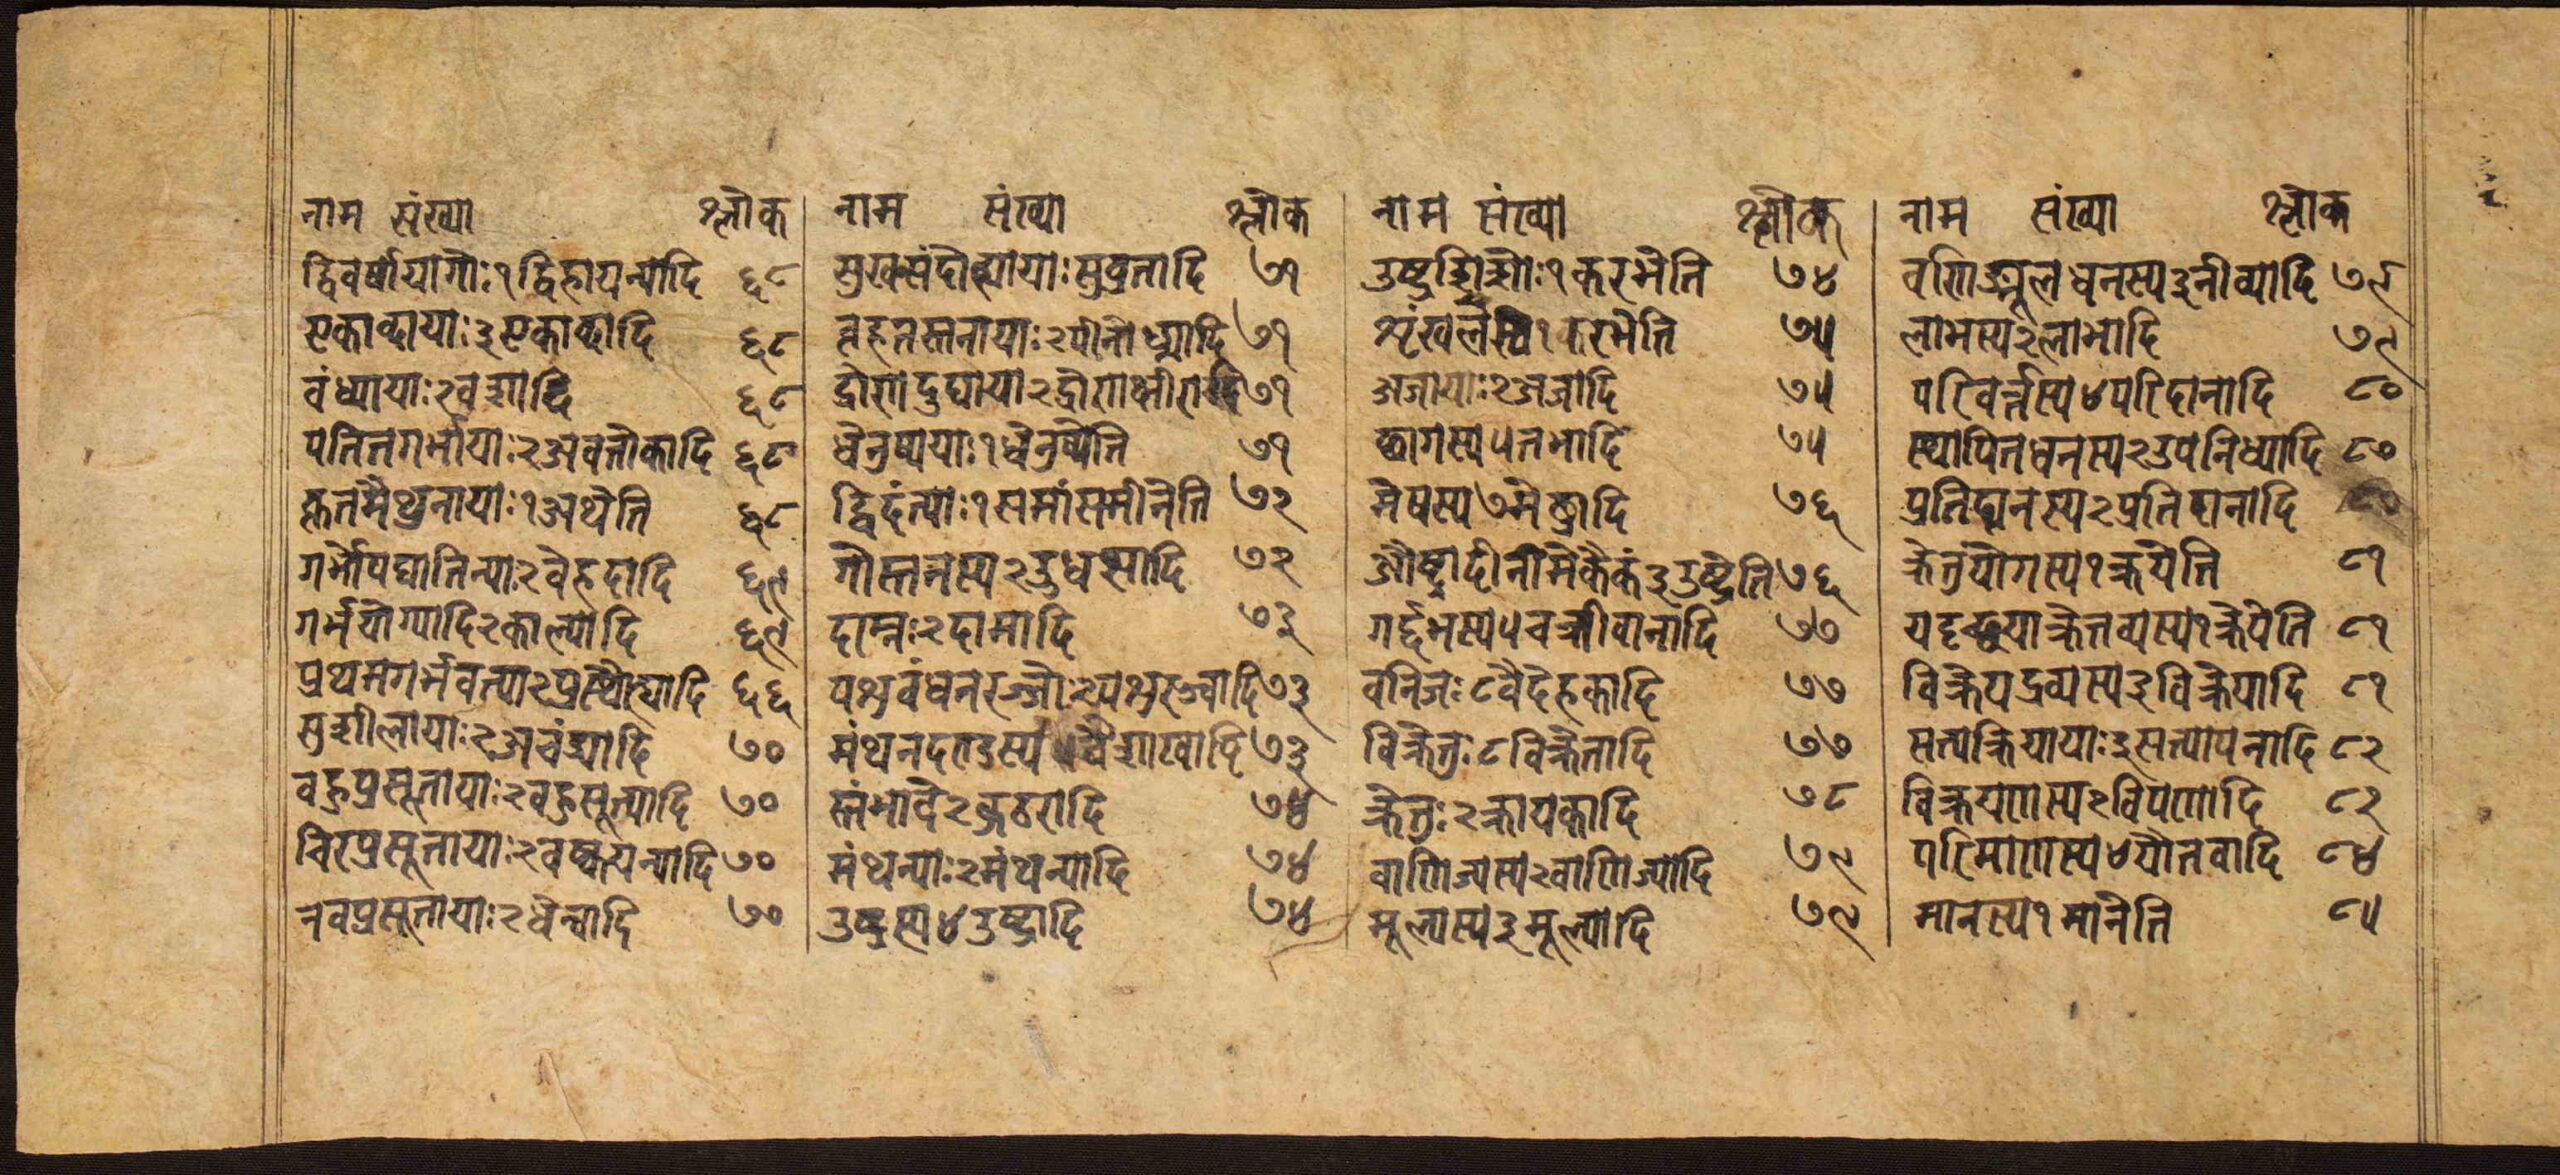 नाम संख्या श्लोक
द्विवर्षायागोः१ द्विहायन्यादि ६८
एकाव्दायाः३ एकाव्दादि ६८
वंध्यायाः२ वशादि ६८
पतितगर्भायाः२ अवतोकादि ६८
कृतमैथुनायाः१ अथेति ६८
गर्भोपघातिन्याः२ वेहदादि ६९
गर्भयोग्यादि२ काल्यादि ६९
प्रथमगर्भवत्याः२ प्रष्टौह्यादि ६६
सुशीलायाः२ अचंड्यादि ७०
वहुप्रसूतायाः२ वहुसूत्यादि ७०
चिरप्रसूतायाः२ वष्कयन्यादि ७०
नवप्रसूतायाः२ धेन्वादि ७०
नाम संख्या श्लोक
सुखसंदोह्यायाः सुव्रतादि ७१
वृहतस्तनायाः२ पीनोध्न्यादि ७१
द्रोणदुघाया२ द्रोणक्षीरादि ७१
धेनुष्ययाः१ धेनुष्येति ७१
द्विदंत्याः१ समांसमीनेति ७२
गोस्तनस्य२ उधसादि ७२
दाम्नः२ दामादि ७३
पशुवंधनरज्जोः२ पशुरज्वादि ७३
मंथनदण्डस्य५ वैशाखादि ७३
स्तंभादे२ कुठरादि ७४
मंथन्याः२ मंथन्यादि ७४
उष्ट्रस्य४ उष्ट्रादि ७४
नाम संख्या श्लोक
उष्ट्रशिशोः१ करभेति ७४
शृंखलस्य१ करभेति ७५
अजायाः२ अजादि ७५
छागस्य५ तभादि ७५
मेषस्य७ मेढ्रादि ७६
औष्ट्रादीनामेकैकं३ उष्ट्रेति ७६
गर्द्दभस्य५ चक्रीवानादि ७७
वनिजः८ वैदेहकादि ७७
विक्रेतुः८ विक्रेतादि ७७
क्रेतुः२ क्रायकादि ७८
वाणिज्यस्य२ वाणिज्यादि ७९
मूल्यस्य३ मूल्यादि ७९
नाम संख्या श्लोक
वणिङ्मूलधनस्य३ नीव्यादि ७९
लाभस्य२ लाभादि ७९
परिवर्त्तस्य४ परिदानादि ८०
स्थापितधनस्य२ उपनिध्यादि ८०
प्रतिदानस्य२ प्रतिदानादि ८०
क्रेतुयोगस्य१ क्रयेति ८१
यदृच्छयाक्रेतव्यस्य१ क्रेयेति ८१
विक्रेयद्रव्यस्य३ विक्रेयादि ८१
सत्यक्रियायाः३ सत्यापनादि ८२
विक्रयणस्य२ विपणादि ८२
परिमाणस्य४ यौतवादि ८४
मानस्य१ मानेति ८५